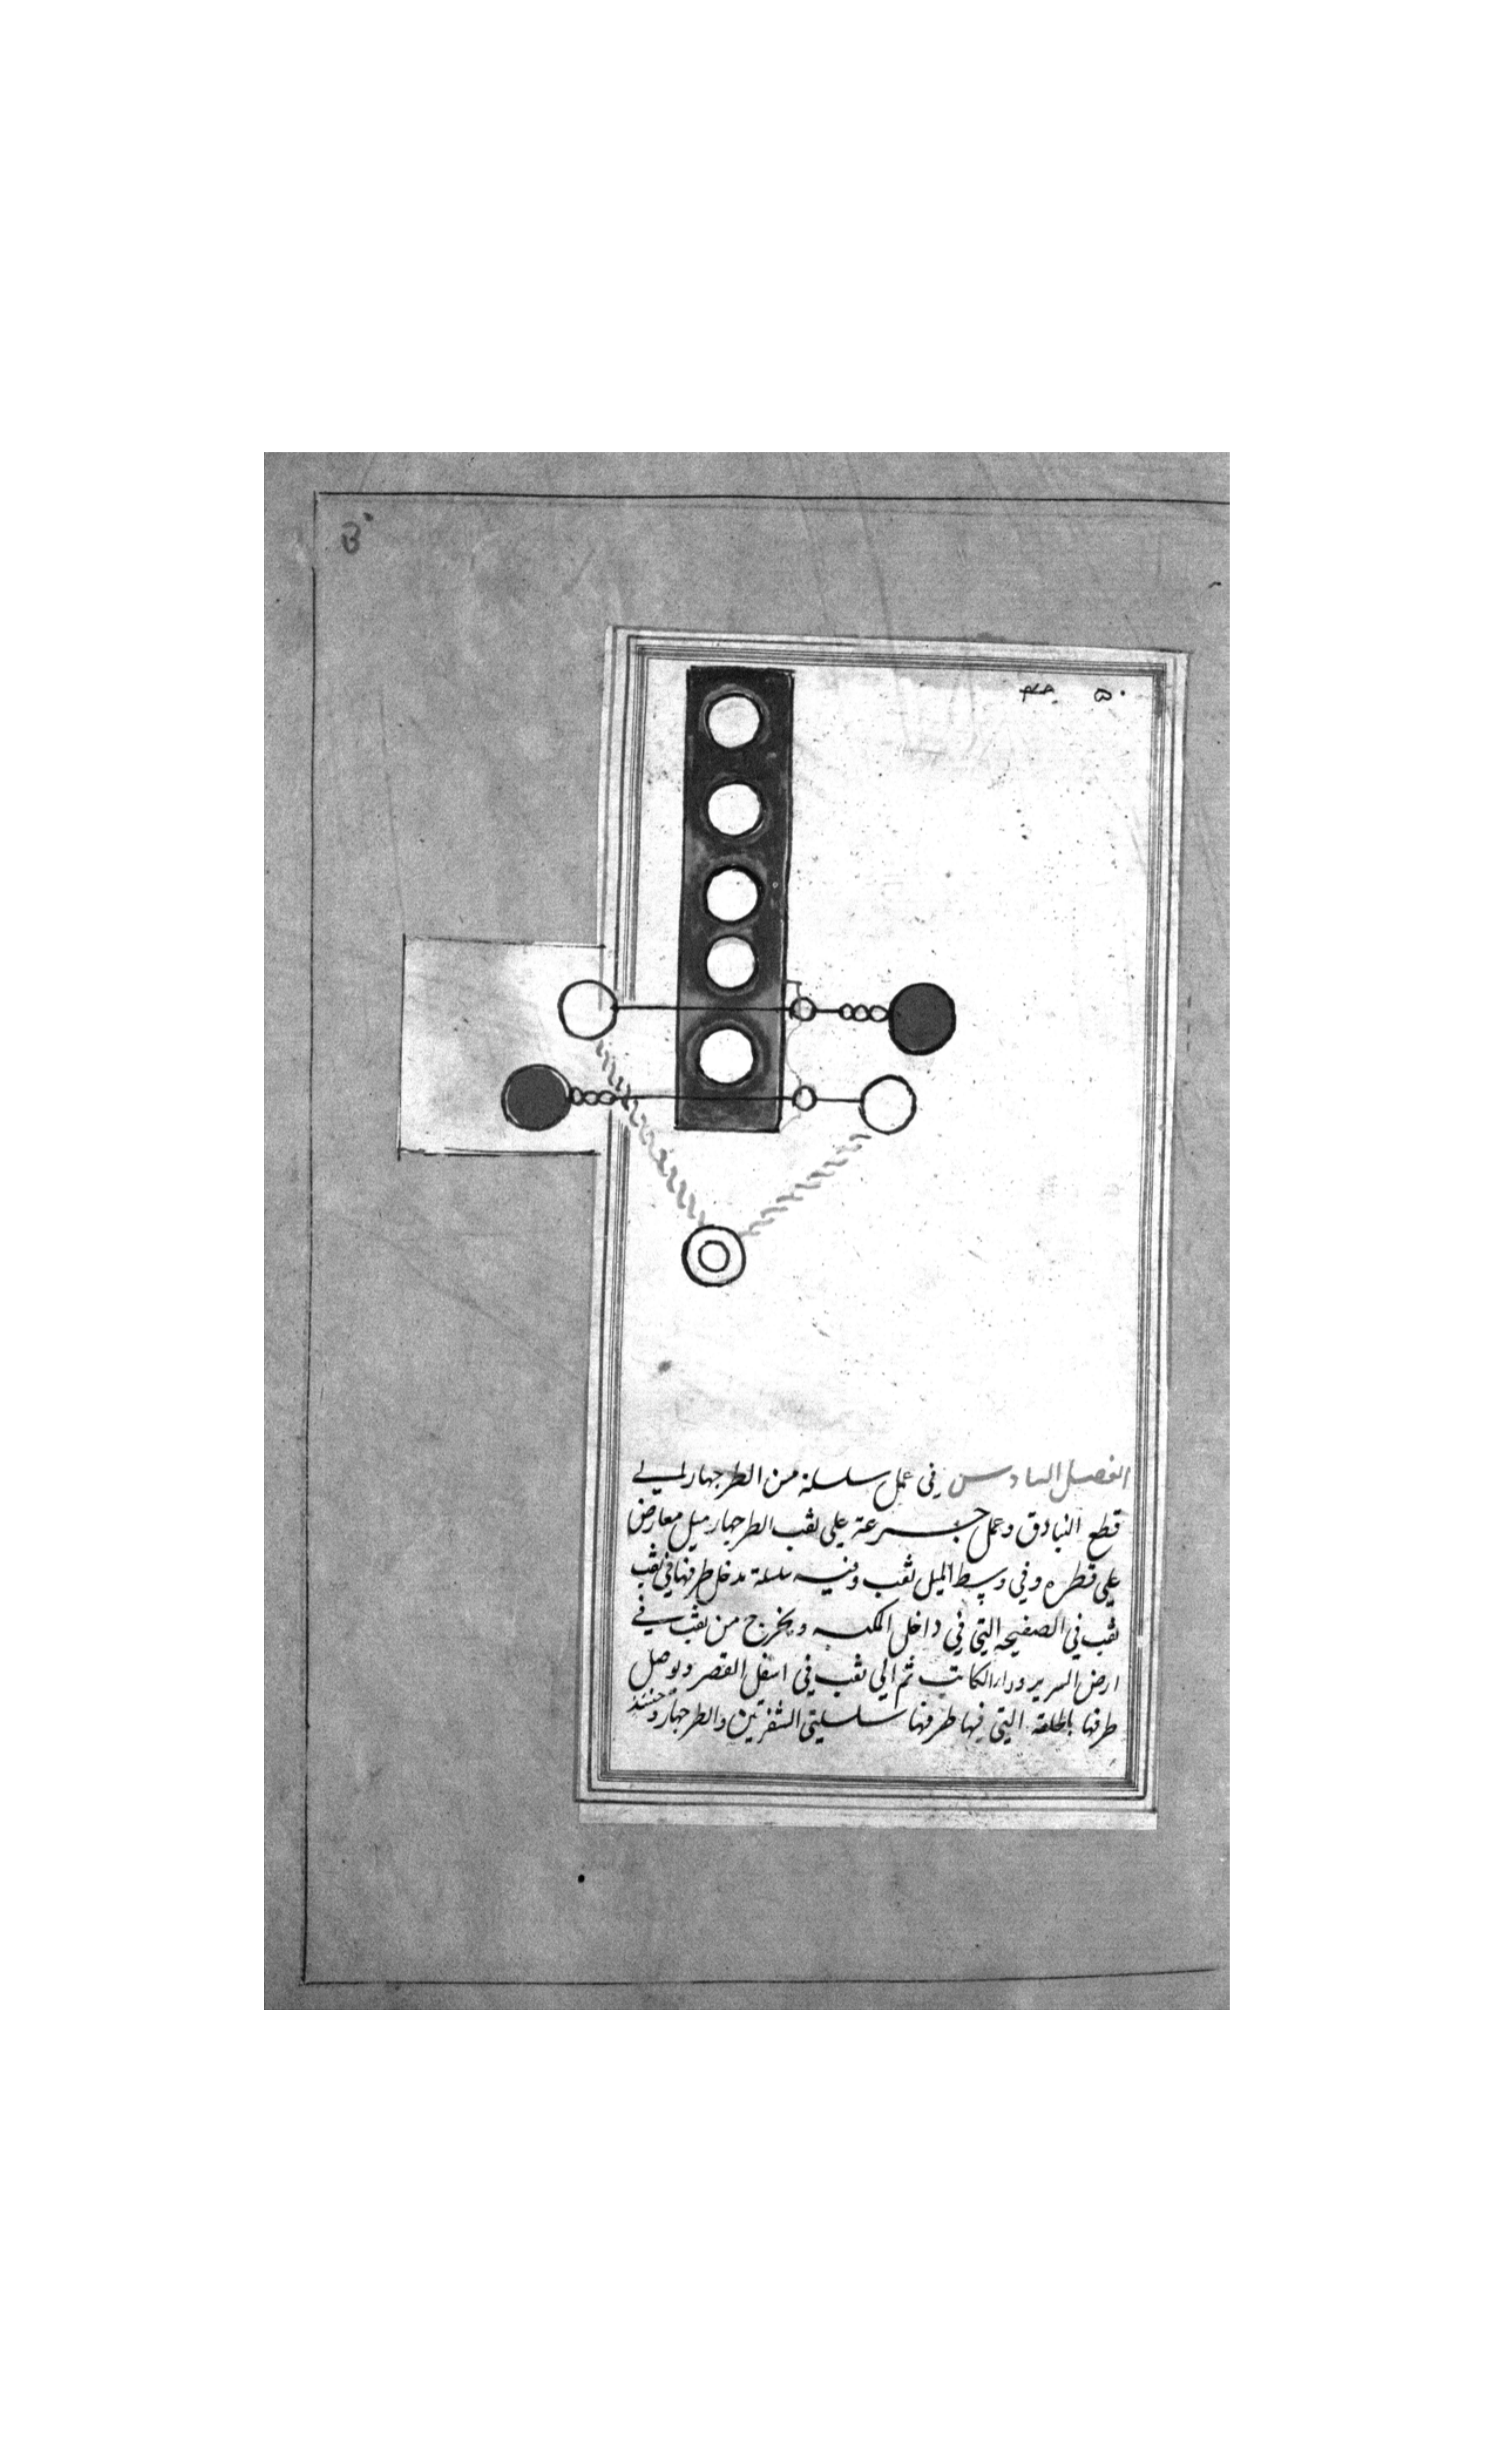 ٥٠
الفصل السادس في عمل سلسلة من الطرجهار الي
قطع البنادق وعمل جرعة علي ثقب الطرجهار ميل معارض
علي قطره وفي وسط الميل ثقب وفيه سلسلة مدخل طرفها في ثقب
ثقب في الصفيحه التي في داخل الكبه ويخرج من ثقب في
ارض السرير ودار الكاتب ثم الي ثقب في اسفل القصر ويوصل
طرفها بالحلقة التي فيها طرفها سلسلتي الشفرتين والطرجهار وحينئذ